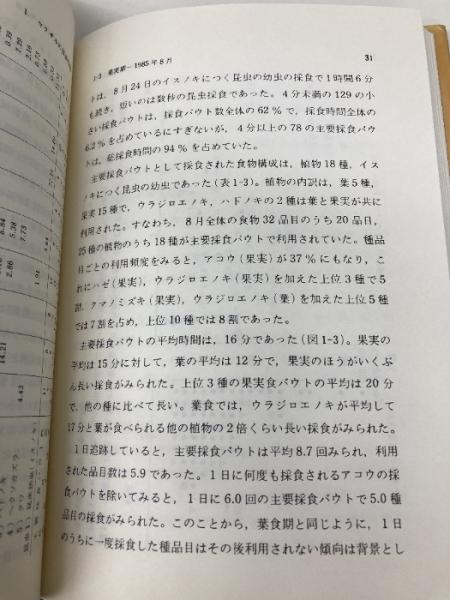 1-3 果実期—1985年8月 31
トは，8月24日のイスノキにつく昆虫の幼虫の採食で1時間6分
も続き，短いのは数秒の昆虫採食であった。4分未満の129の小
さい採食バウトは，採食バウト数全体の62%で，採食時間全体の
6.2%を占めているにすぎないが，4分以上の78の主要採食バウ
トは，総採食時間の94%を占めていた。
主要採食バウトとして採食された食物構成は，植物18種，イス
ノキにつく昆虫の幼虫であった(表1-3)。植物の内訳は，葉5種，
果実15種で，ウラジロエノキ，ハドノキの2種は葉と果実が共に
利用された。すなわち，8月全体の食物32品目のうち20品目，
25種の植物のうち18種が主要採食バウトで利用されていた。種品
目ごとの利用頻度をみると，アコウ(果実)が37%にもなり，こ
れにハゼ(果実)，ウラジロエノキ(果実)を加えた上位3種で5
割，クマノミズキ(果実)，ウラジロエノキ(葉)を加えた上位5種
では7割を占め，上位10種では8割であった。
主要採食バウトの平均時間は，16分であった(図1-3)。果実の
平均は15分に対して，葉の平均は12分で，果実のほうがいくぶ
ん長い採食がみられた。上位3種の果実食バウトの平均は20分
で，他の種に比べて長い。葉食では，ウラジロエノキが平均して
17分と葉が食べられる他の植物の2倍くらい長い採食がみられた。
1日追跡していると，主要採食バウトは平均8.7回みられ，利用
された品目数は5.9であった。1日に何度も採食されるアコウの採
食バウトを除いてみると，1日に6.0回の主要採食バウトで5.0種
品目の採食がみられた。このことから，葉食期と同じように，1日
のうちに一度採食した種品目はその後利用されない傾向は背景とし